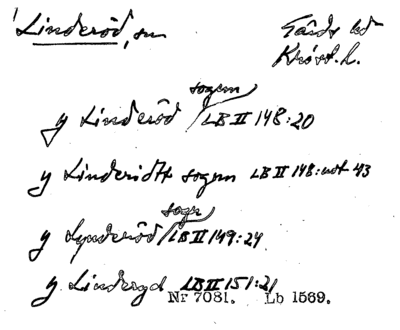 Linderöd, sn
Gärds hd
Krist. l.
y Linderöd sogem LB II 148:20
y Linderidtt sogem LB II 148: not 43
y Lynderöd sogn LB II 149:24
y Linderyd LB II 151:21
Nr 7081. Lb 1569.